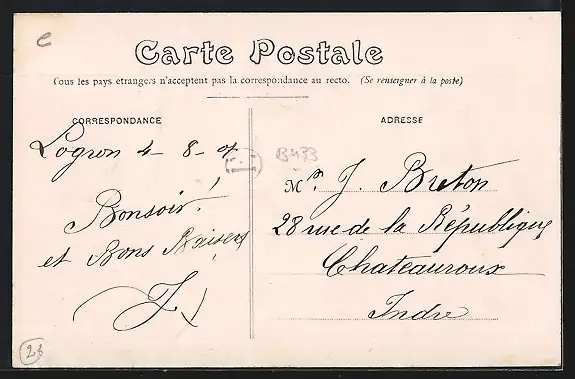 Carte Postale
Tous les pays etrangers n'acceptent pas la correspondance au recto. (Se renseigner à la poste)
CORRESPONDANCE
ADRESSE
Logron 4-8-07
B433
Bonsoir!
et Bons Baisers
J
Mr. J. Breton
28 rue de la République
Chateauroux
Indre